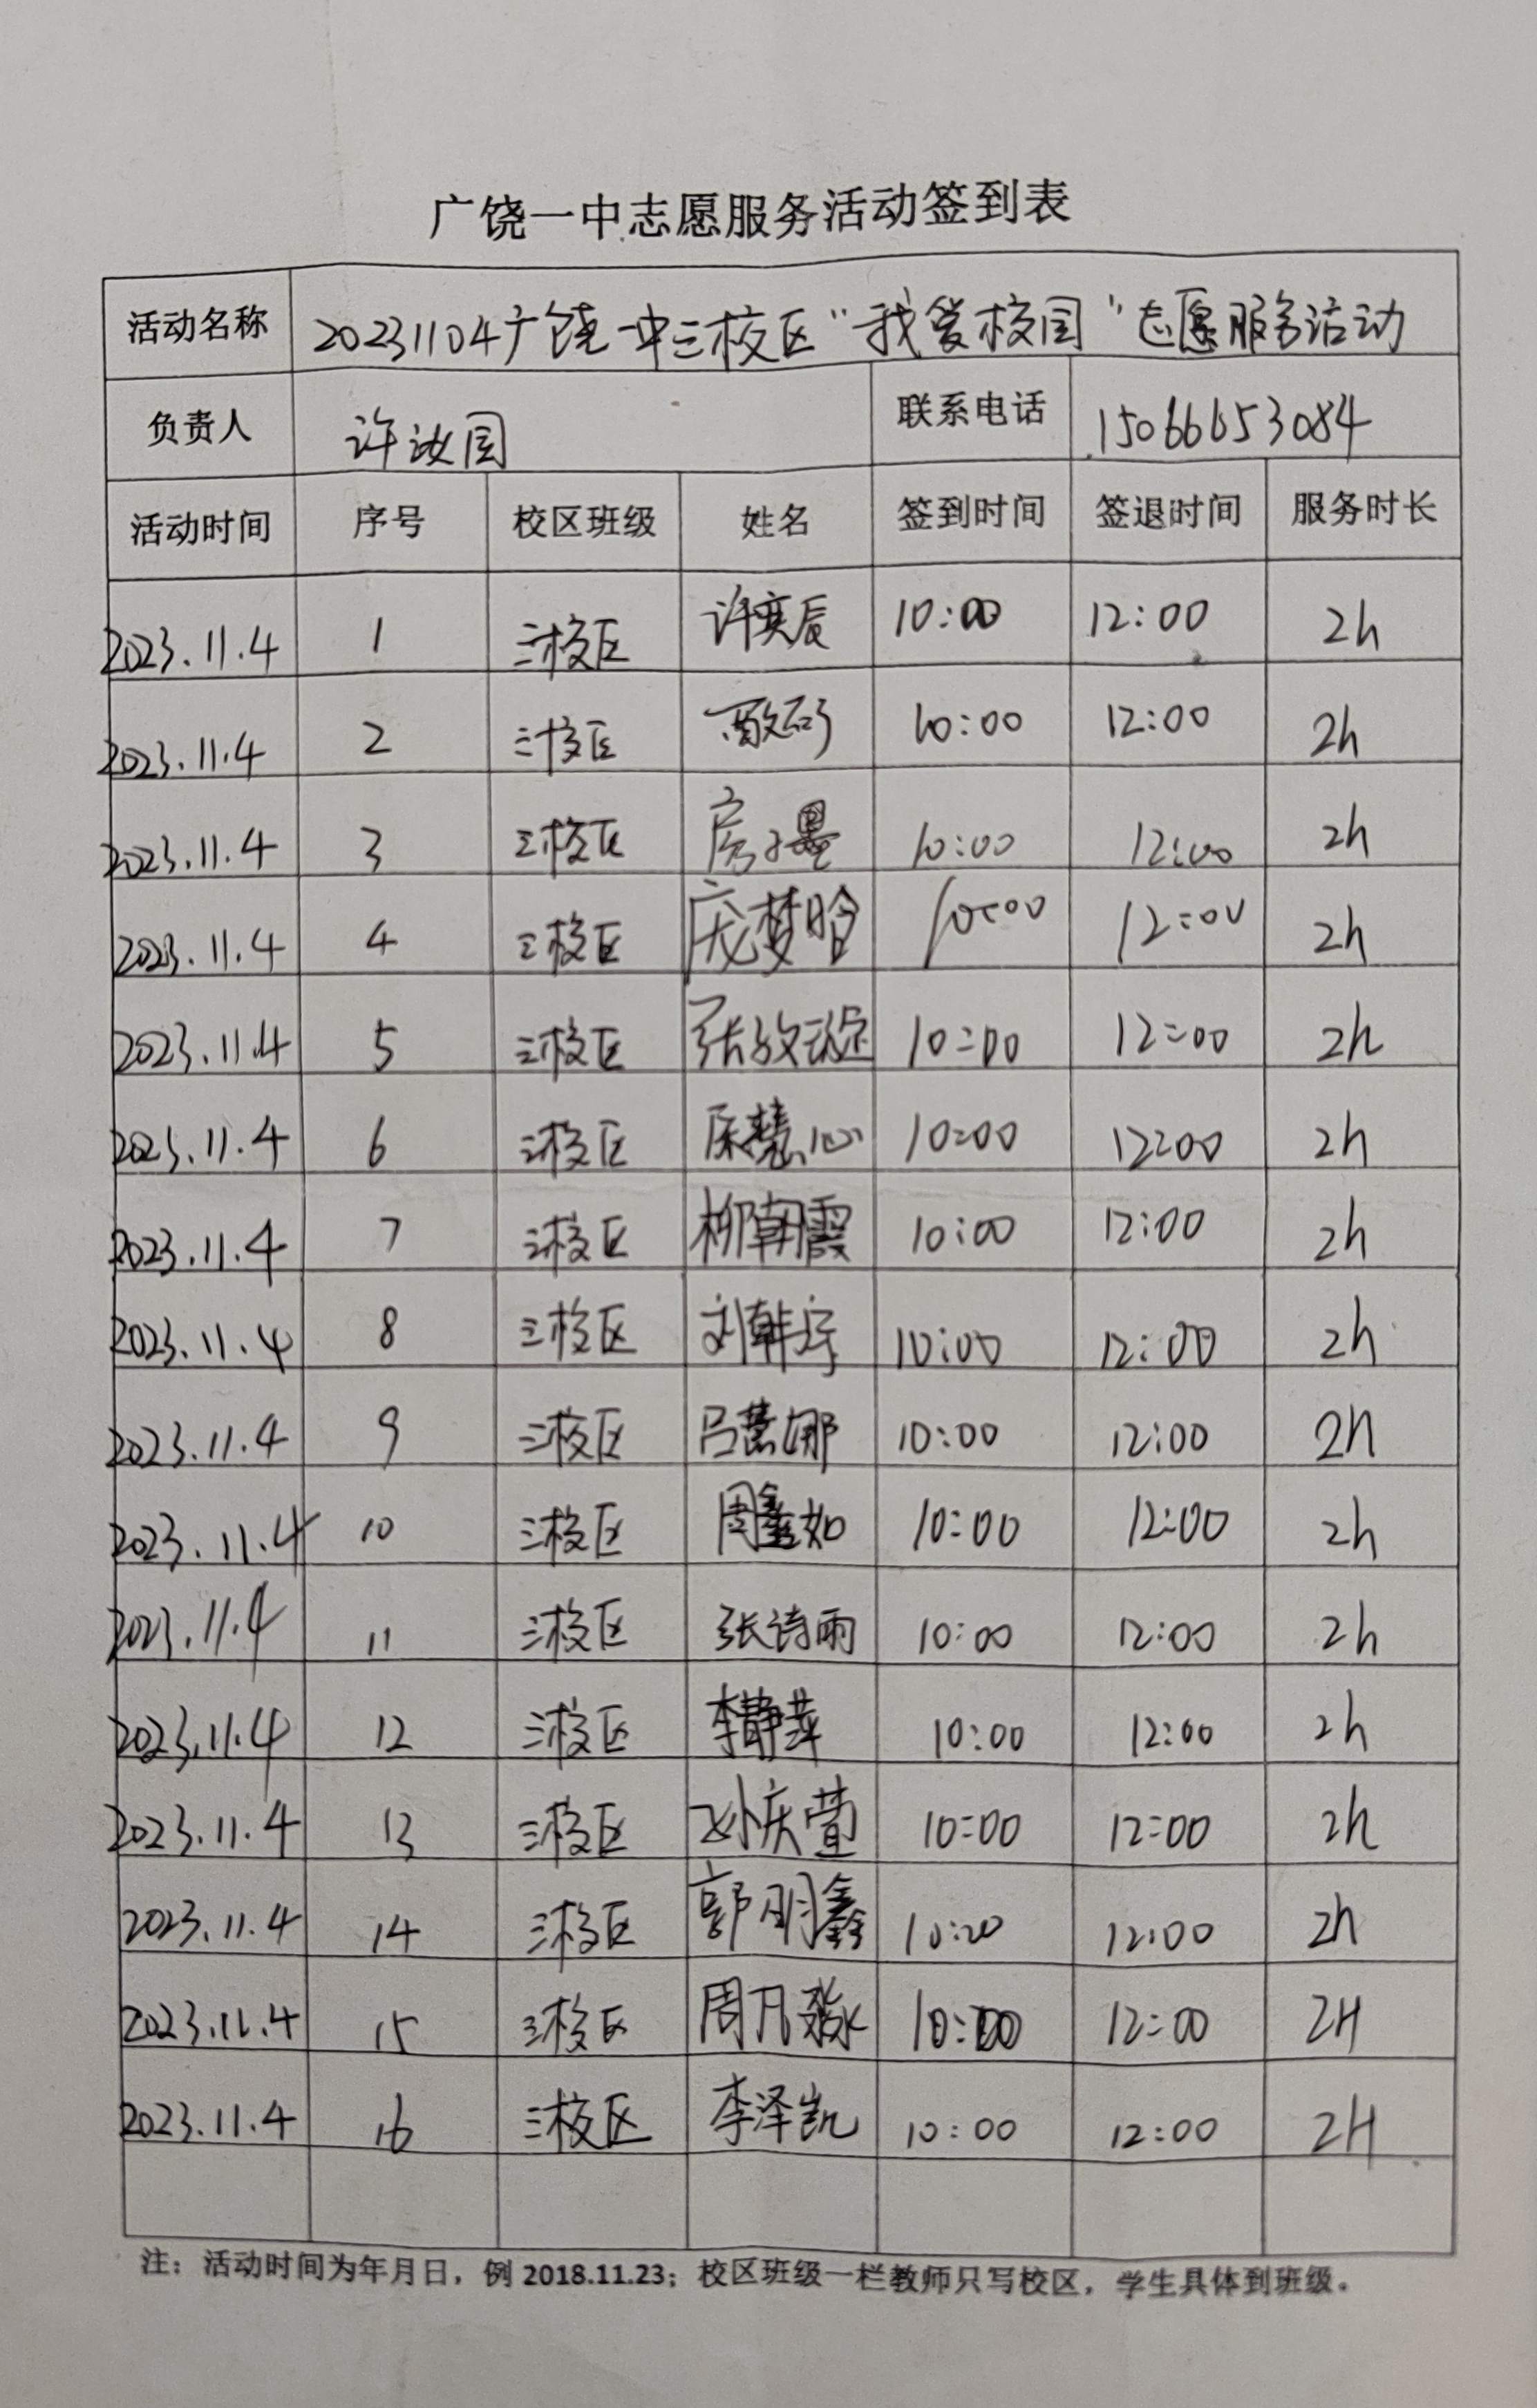 广饶一中志愿服务活动签到表
活动名称 20231104广饶一中三校区“我爱校园”志愿服务活动
负责人 许汝国 联系电话 15066653084
活动时间 序号 校区班级 姓名 签到时间 签退时间 服务时长
2023.11.4 1 三校区 许奕辰 10:00 12:00 2h
2023.11.4 2 三校区 10:00 12:00 2h
2023.11.4 3 三校区 房子墨 10:00 12:00 2h
2023.11.4 4 三校区 庞梦晗 10:00 12:00 2h
2023.11.4 5 三校区 10:00 12:00 2h
2023.11.4 6 三校区 10:00 12:00 2h
2023.11.4 7 三校区 柳朝霞 10:00 12:00 2h
2023.11.4 8 三校区 10:00 12:00 2h
2023.11.4 9 三校区 吕慧娜 10:00 12:00 2h
2023.11.4 10 三校区 周鑫如 10:00 12:00 2h
2023.11.4 11 三校区 张诗雨 10:00 12:00 2h
2023.11.4 12 三校区 李静萍 10:00 12:00 2h
2023.11.4 13 三校区 孙庆萱 10:00 12:00 2h
2023.11.4 14 三校区 郭明鑫 10:00 12:00 2h
2023.11.4 15 三校区 周凡淼 10:00 12:00 2H
2023.11.4 16 三校区 李泽凯 10:00 12:00 2H
注：活动时间为年月日，例 2018.11.23；校区班级一栏教师只写校区，学生具体到班级。